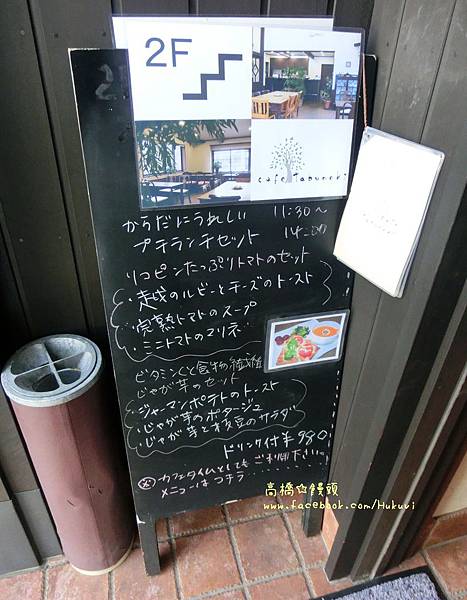 2F
cafe Tanunoki
からだにうれしい 11:30〜
プチランチセット 14:00
リコピンたっぷりトマトのセット
・越のルビーとチーズのトースト
・完熟トマトのスープ
・ミニトマトのマリネ
ビタミンCと食物繊維
じゃが芋のセット
・ジャーマンポテトのトースト
・じゃが芋のポタージュ
・じゃが芋と枝豆のサラダ
ドリンク付¥980
※カフェタイムとしてもご利用下さい。
メニューはコチラ....
高橋✿饅頭
www.facebook.com/Hukuvi